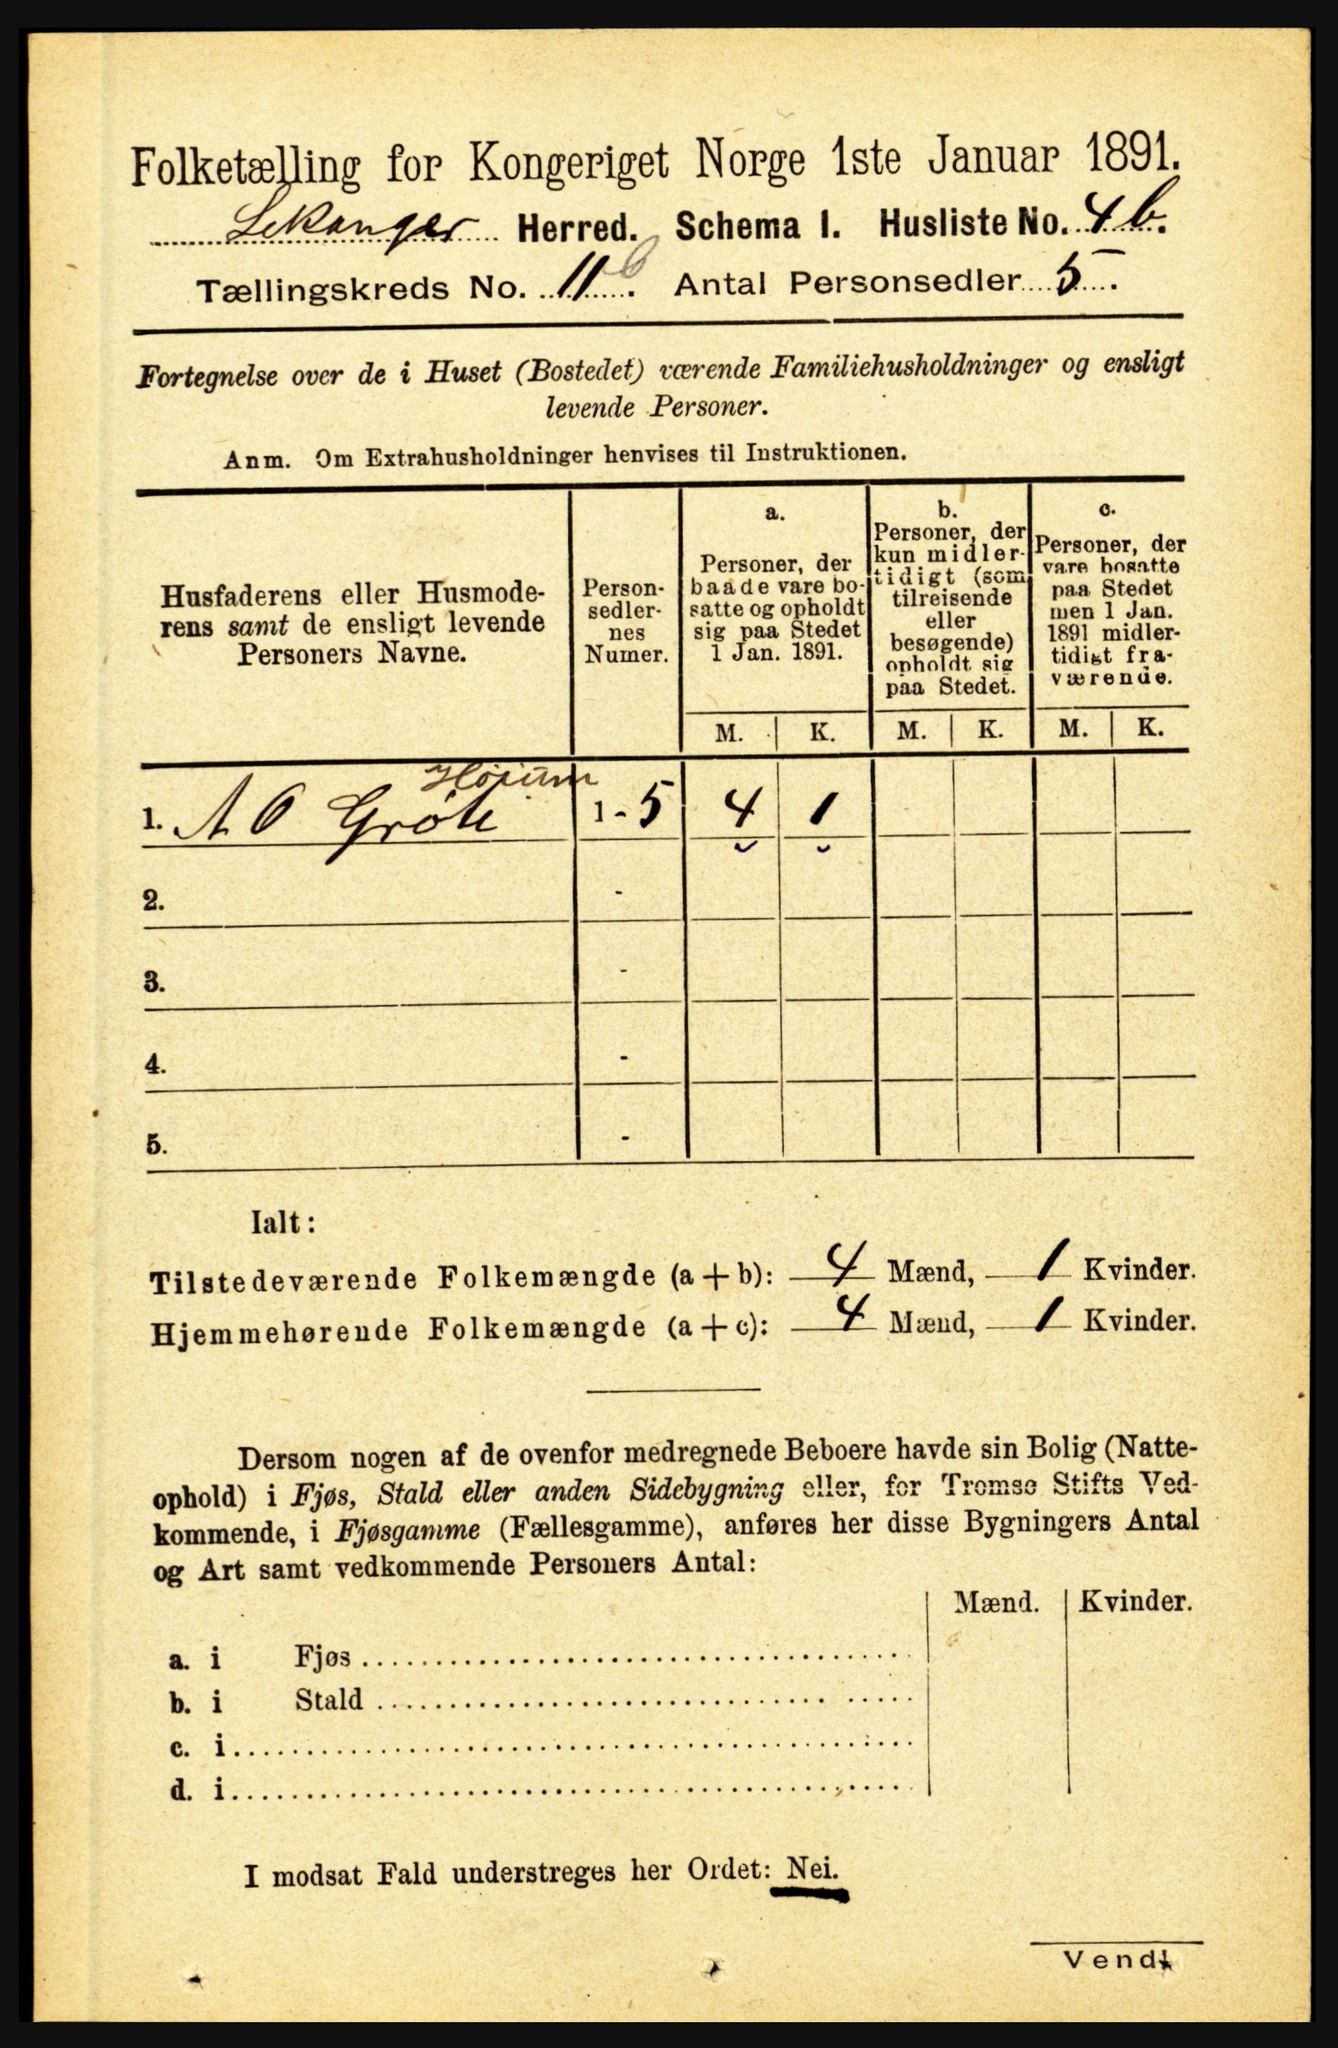 Folketælling for Kongeriget Norge 1ste Januar 1891.
Lekanger Herred. Schema I. Husliste No. 4b.
Tællingskreds No. 11b. Antal Personsedler 5.
Fortegnelse over de i Huset (Bostedet) værende Familiehusholdninger og ensligt
levende Personer.
Anm. Om Extrahusholdninger henvises til Instruktionen.
Husfaderens eller Husmode-
rens samt de ensligt levende
Personers Navne.
Person-
sedler-
nes
Numer.
a.
Personer, der
baade vare bo-
satte og opholdt
sig paa Stedet
1 Jan. 1891.
b.
Personer, der
kun midler-
tidigt (som
tilreisende
eller
besøgende)
opholdt sig
paa Stedet.
c.
Personer, der
vare bosatte
paa Stedet
men 1 Jan.
1891 midler-
tidigt fra-
værende.
M. K. M. K. M. K.
Høium
1. A O Grøte 1 - 5 4 1
2. -
3. -
4. -
5. -
Ialt:
Tilstedeværende Folkemængde (a + b): 4 Mænd, 1 Kvinder.
Hjemmehørende Folkemængde (a + c): 4 Mænd, 1 Kvinder.
Dersom nogen af de ovenfor medregnede Beboere havde sin Bolig (Natte-
ophold) i Fjøs, Stald eller anden Sidebygning eller, for Tromsø Stifts Ved-
kommende, i Fjøsgamme (Fællesgamme), anføres her disse Bygningers Antal
og Art samt vedkommende Personers Antal:
Mænd. Kvinder.
a. i Fjøs
b. i Stald
c. i
d. i
I modsat Fald understreges her Ordet: Nei.
Vend!